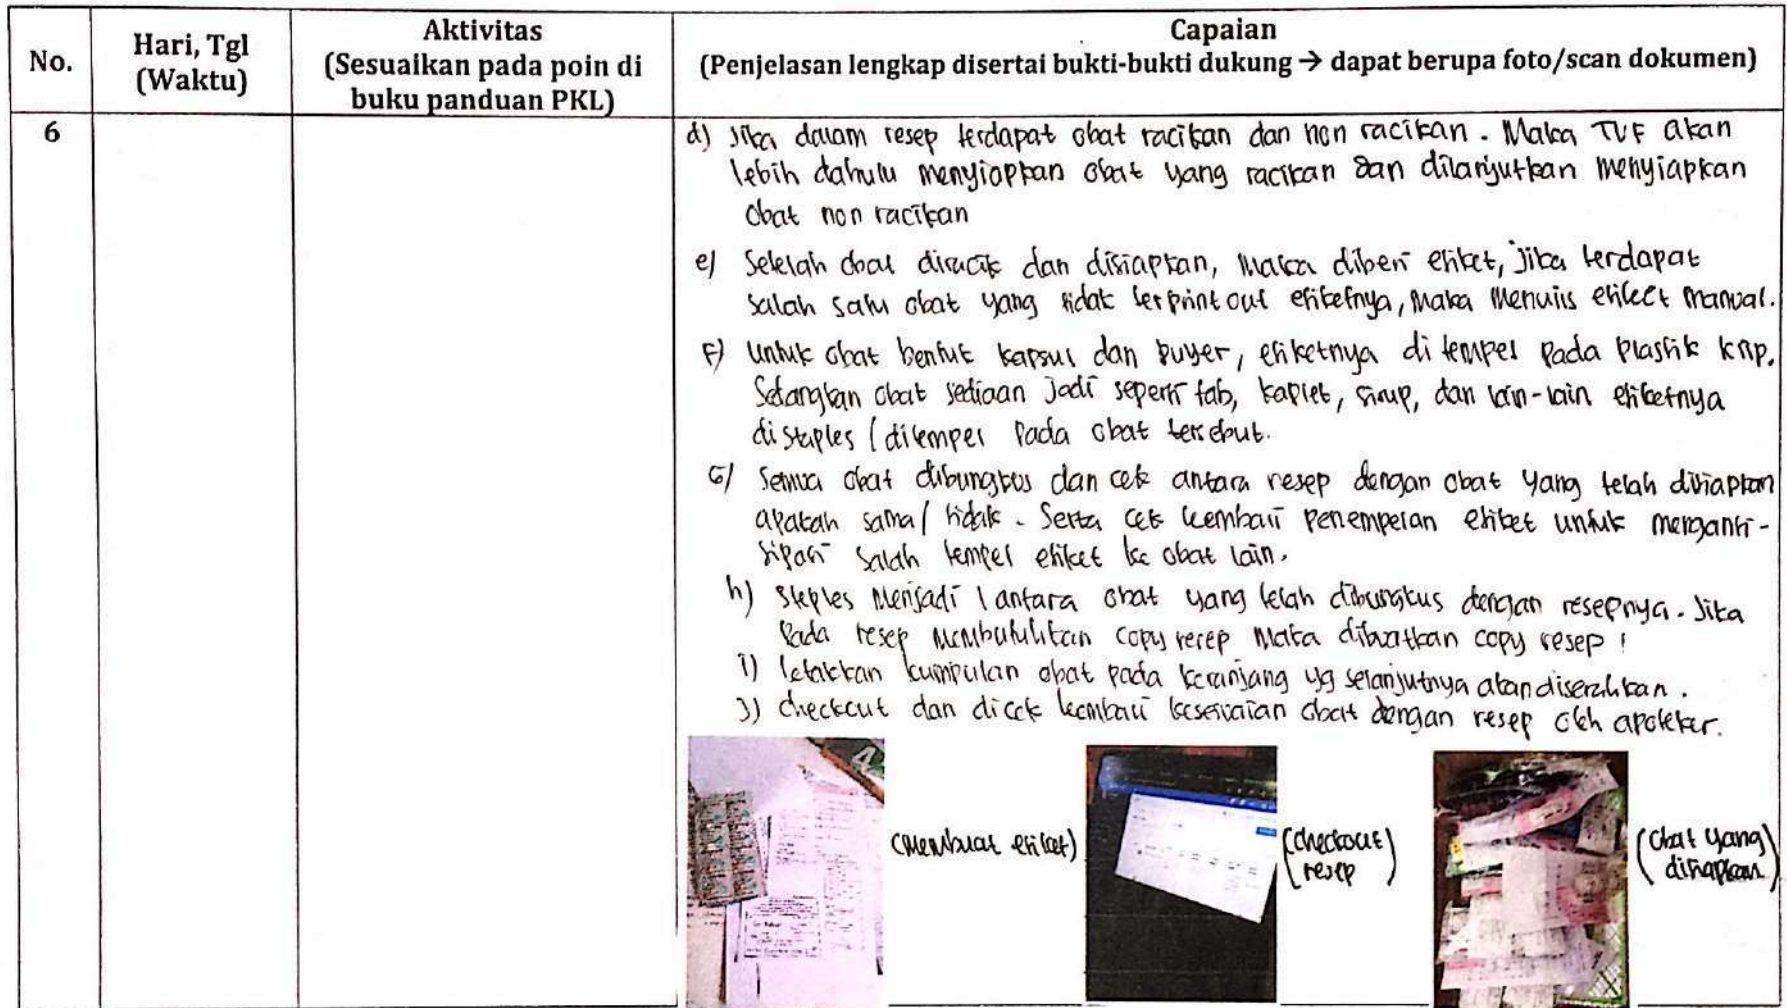 No.
Hari, Tgl
(Waktu)
Aktivitas
(Sesuaikan pada poin di
buku panduan PKL)
Capaian
(Penjelasan lengkap disertai bukti-bukti dukung → dapat berupa foto/scan dokumen)
6
d) Jika dalam resep terdapat obat racikan dan non racikan. Maka TVF akan
lebih dahulu menyiapkan obat yang racikan dan dilanjutkan menyiapkan
obat non racikan
e) Setelah obat diracik dan disiapkan, maka diberi etiket, jika terdapat
salah satu obat yang tidak terprint out etiketnya, maka menulis etiket manual.
F) Untuk obat bentuk kapsul dan puyer, etiketnya di tempel pada plastik klip.
Sedangkan obat sediaan jadi seperti tab, kaplet, sirup, dan lain-lain etiketnya
di staples / ditempel pada obat tersebut.
G) Semua obat dibungkus dan cek antara resep dengan obat yang telah disiapkan
apakah sama / tidak. Serta cek kembali penempelan etiket untuk menganti-
sipasi salah tempel etiket ke obat lain.
h) Steples menjadi 1 antara obat yang telah dibungkus dengan resepnya. Jika
pada resep membutuhkan copy resep maka dibuatkan copy resep !
i) letakkan kumpulan obat pada keranjang yg selanjutnya akan diserahkan.
J) checkout dan dicek kembali kesesuaian obat dengan resep oleh apoteker.
(Membuat etiket)
(checkout
resep)
(Obat yang
disiapkan)